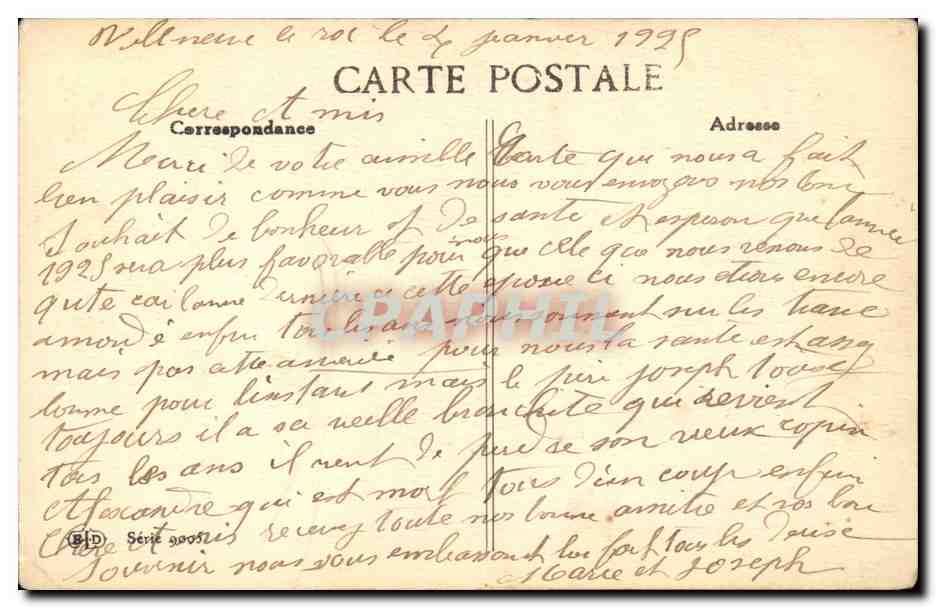 Villneuve le roi le 4 janvier 1925
CARTE POSTALE
Chere et mis
Correspondance
Adresse
Merci de votre aimille Carte que nous a fait
bien plaisir comme vous nous vous envoyons nos bons
Souhait de bonheur et de sante et esperon que lannee
1925 sera plus favorable pour nous que celle que nous venons de
quite car lanne derniere a cette epoque ci nous etions encore
enfin tous les ans sur les
mais pas cette annee pour nous la sante est assez
bonne pour linstant mais le pere joseph tousse
toujours il a sa veille bronchite qui revient
tous les ans il vient de perdre son vieux copin
Alexandre qui est mort tous dun coup enfin
Chere et mis recevez toute nos bonne amitie et nos bon
ED Série 9005
Souvenir nous vous embasson bien fort tous les deuse
Marie et Joseph
CPARHIL